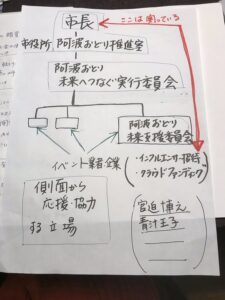 市長
ここは判っている
市役所 阿波おどり推進室
阿波おどり
未来へつなぐ実行委員会
阿波おどり
未来支援委員会
イベント業者 企業
・インフルエンサー招待
・クラウドファンディング
側面から
応援・協力
する立場
宮迫 博之
青汁王子